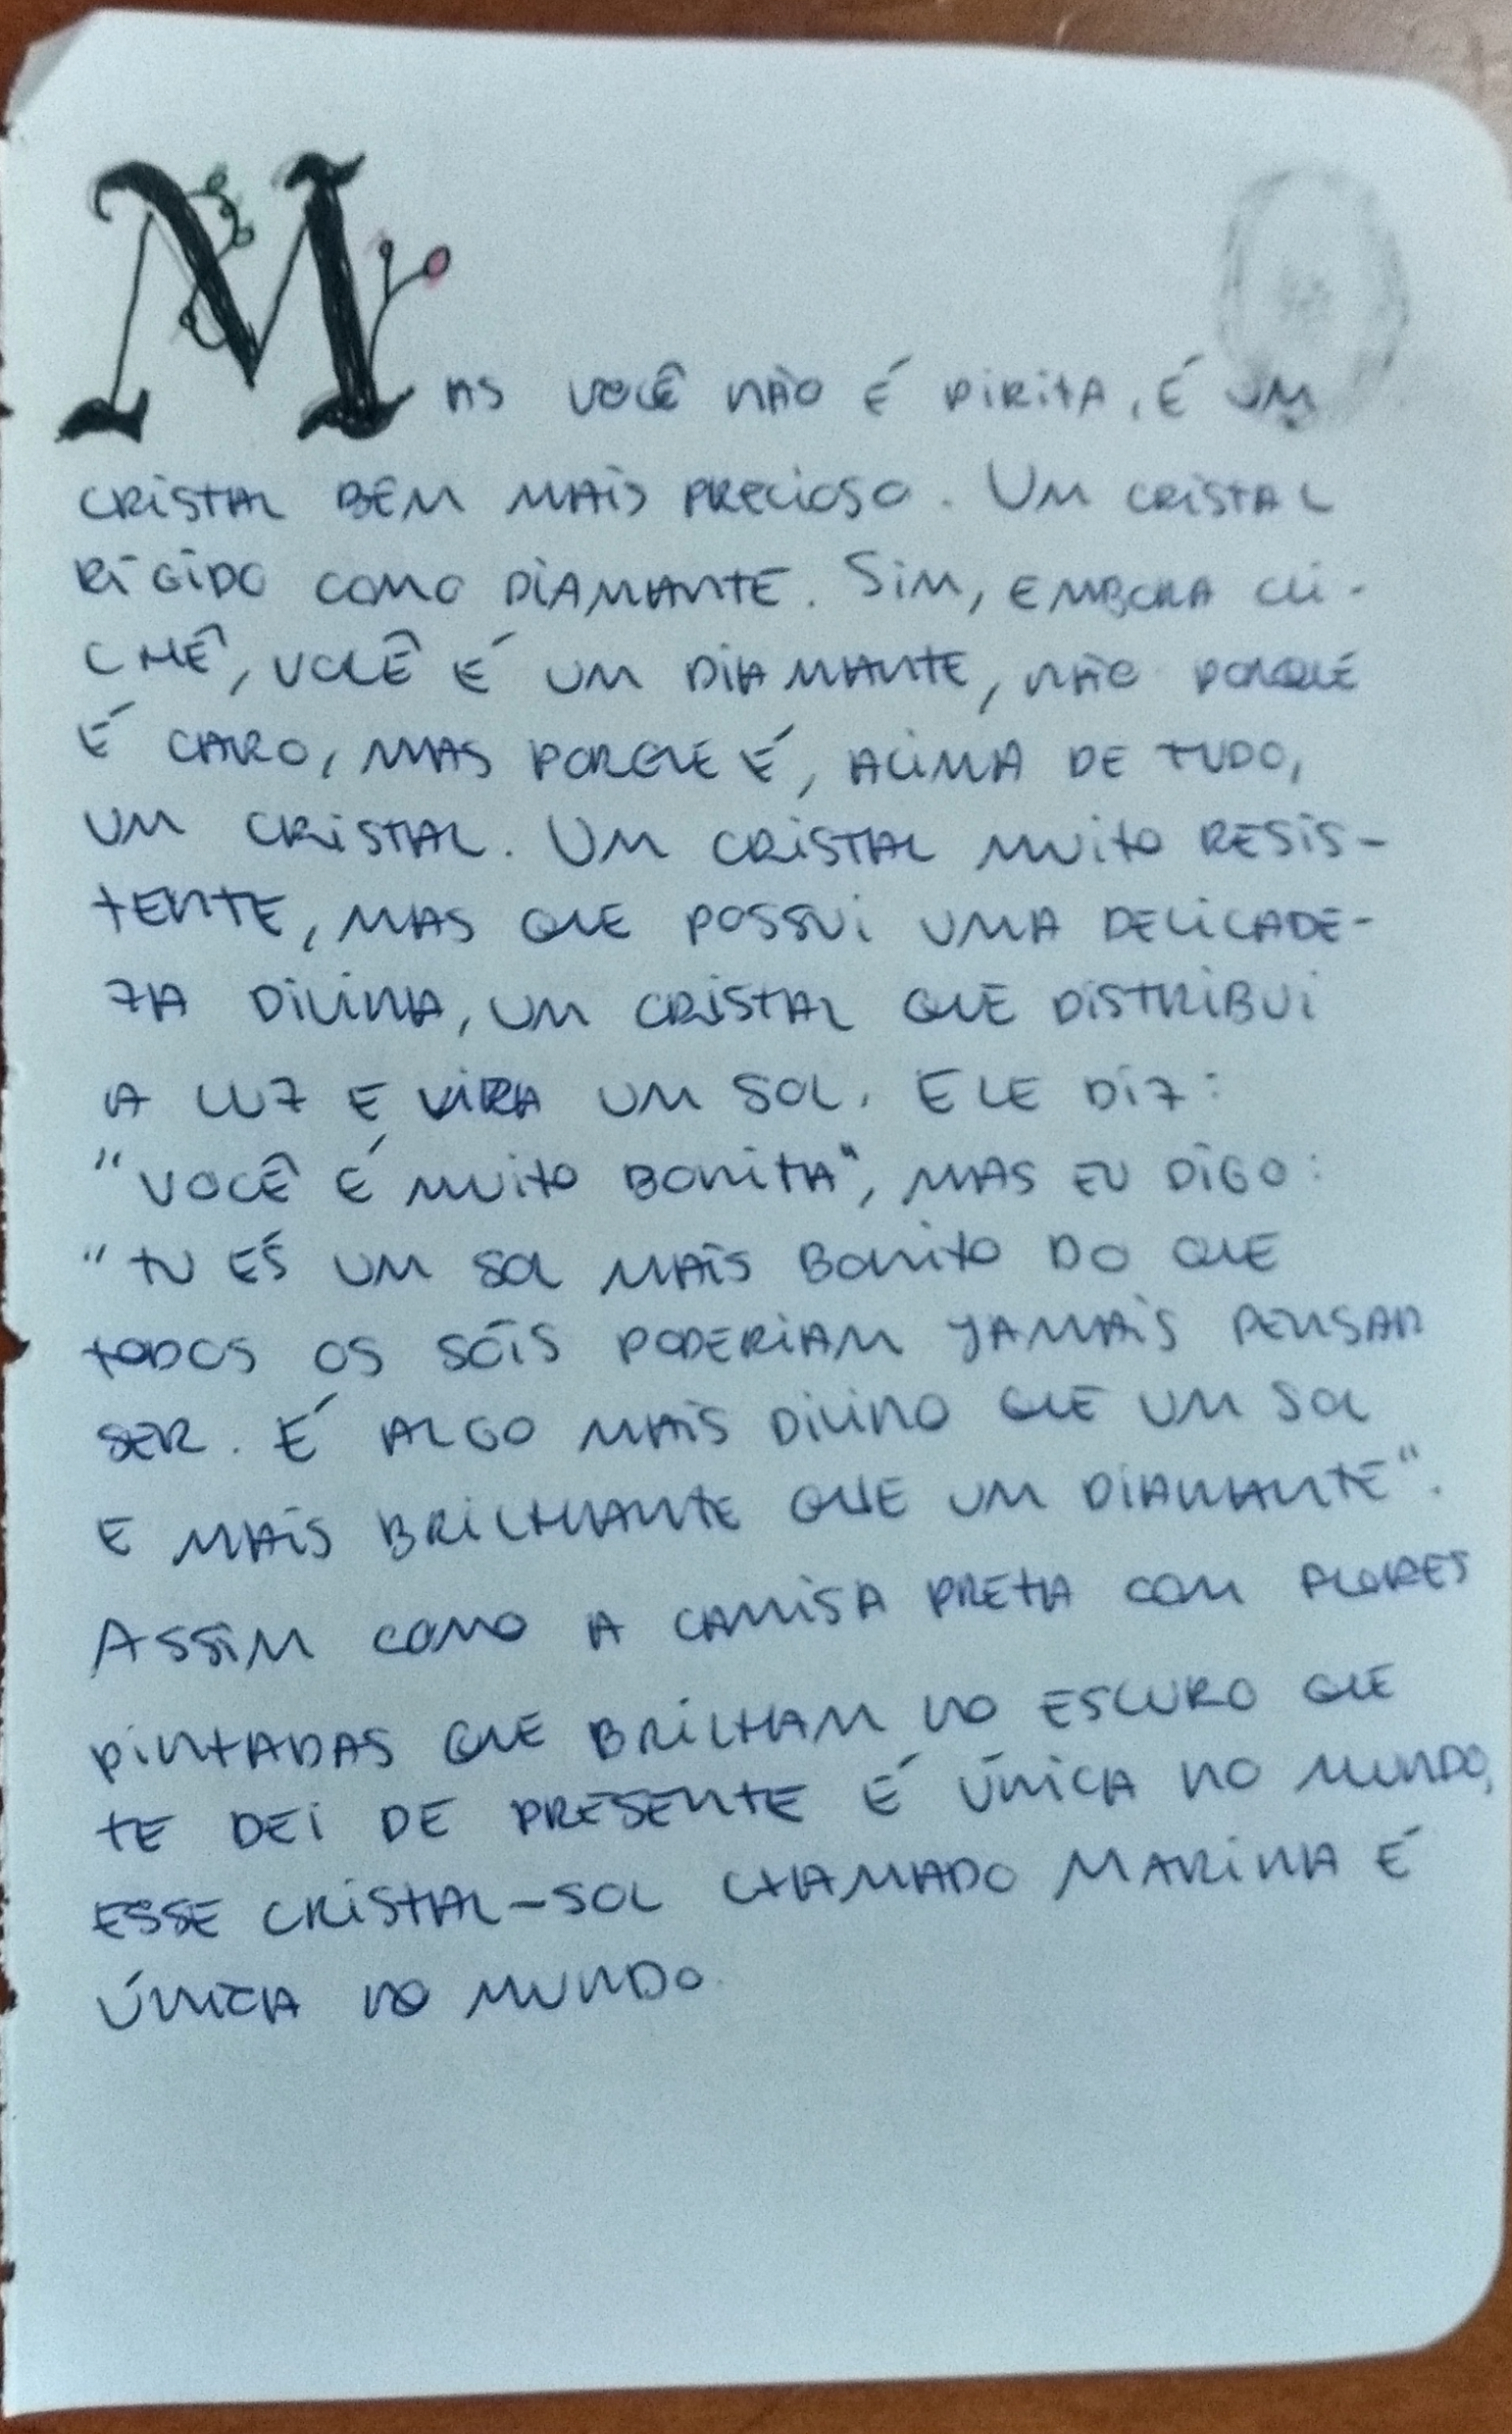 MAS VOCÊ NÃO É PIRITA, É UM
CRISTAL BEM MAIS PRECIOSO. UM CRISTAL
RÍGIDO COMO DIAMANTE. SIM, EMBORA CLI-
CHÊ, VOCÊ É UM DIAMANTE, NÃO PORQUE
É CARO, MAS PORQUE É, ACIMA DE TUDO,
UM CRISTAL. UM CRISTAL MUITO RESIS-
TENTE, MAS QUE POSSUI UMA DELICADE-
ZA DIVINA, UM CRISTAL QUE DISTRIBUI
A LUZ E VIRA UM SOL. ELE DIZ:
"VOCÊ É MUITO BONITA", MAS EU DIGO:
"TU ÉS UM SOL MAIS BONITO DO QUE
TODOS OS SÓIS PODERIAM JAMAIS PENSAR
SER. É ALGO MAIS DIVINO QUE UM SOL
E MAIS BRILHANTE QUE UM DIAMANTE".
ASSIM COMO A CAMISA PRETA COM FLORES
PINTADAS QUE BRILHAM NO ESCURO QUE
TE DEI DE PRESENTE É ÚNICA NO MUNDO,
ESSE CRISTAL-SOL CHAMADO MARINA É
ÚNICA NO MUNDO.